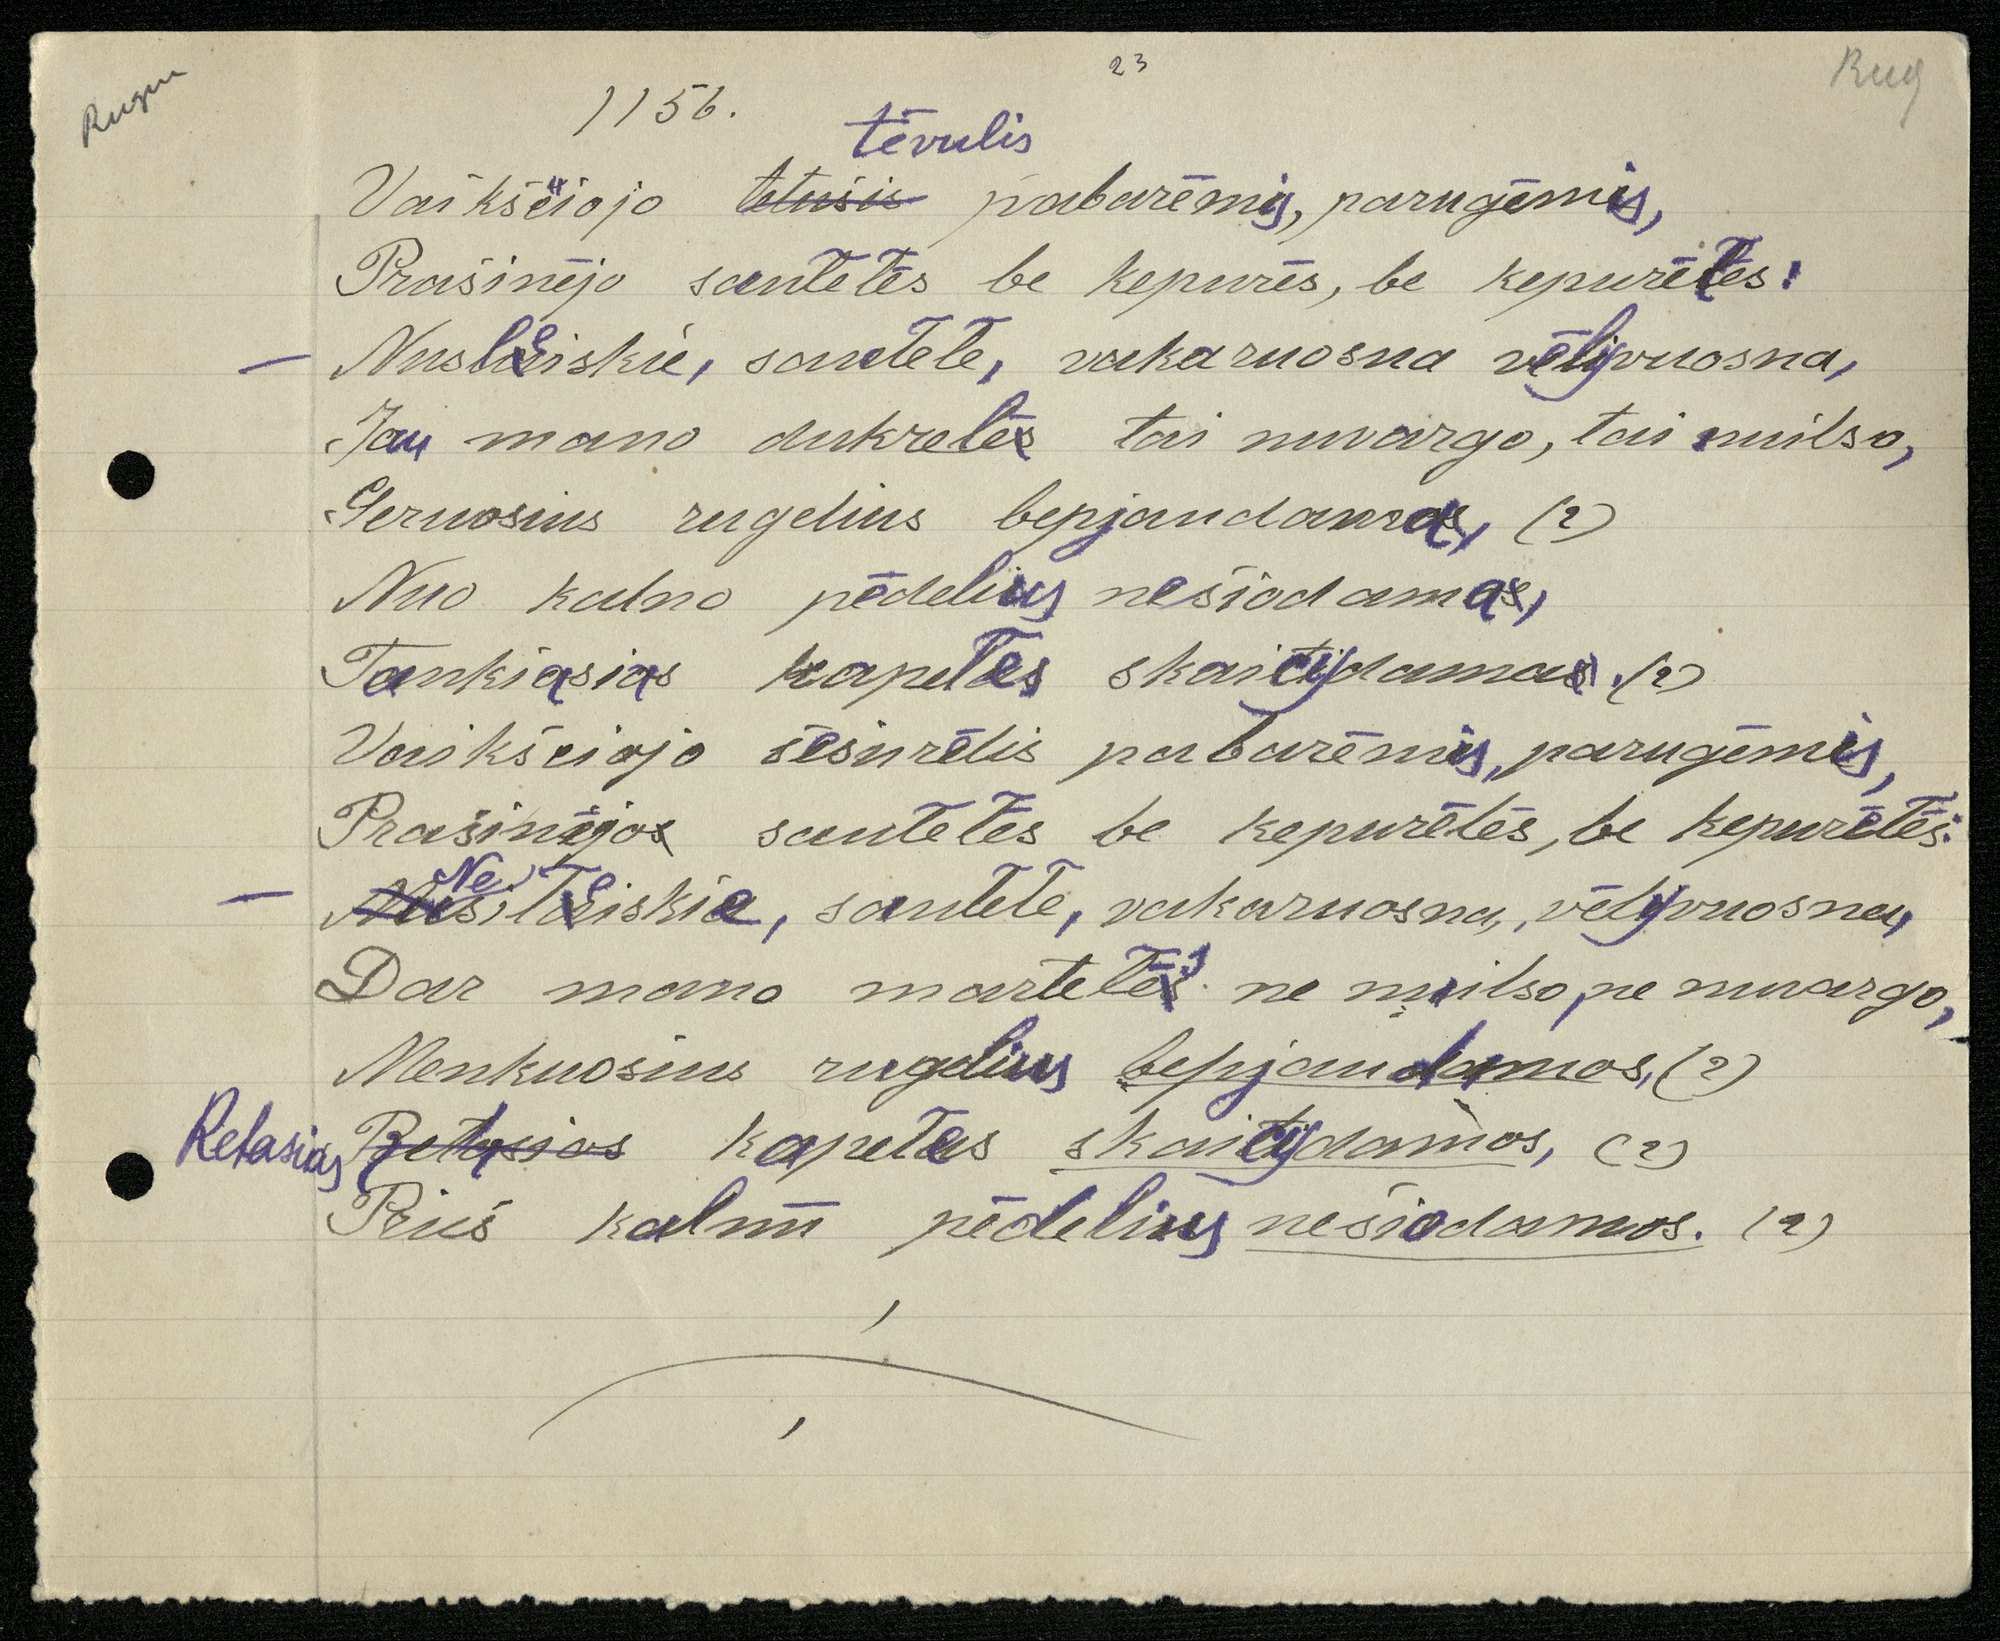 23
Rug
1156.
tėvulis
Vaikščiojo tetušis pabarėmis, parugėmis,
Prašinėjo sautėtės be kepurės, be kepurėtės:
— Nusleiskie, sautėtė, vakaruosna vėlyvuosna,
Jau mano dukretės tai nuvargo, tai nuilso,
Geruosius rugelius bepjaudamas, (2)
Nuo kalno pėdelius nešiodamas,
Tankiąsias kapetes skaitydamas. (2)
Vaikščiojo šešurėlis pabarėmis, parugėmis,
Prašinėjo sautėtės be kepurėtės, be kepurėtės:
— Nesileiskie, sautėtė, vakaruosna, vėlyvuosna,
Dar mano martetės ne nuilso, ne nuvargo,
Menkuosius rugelius bepjaudamos, (2)
Retasias Retasias kapetes skaitydamos, (2)
Prieš kalnu pėdelius nešiodamos. (2)